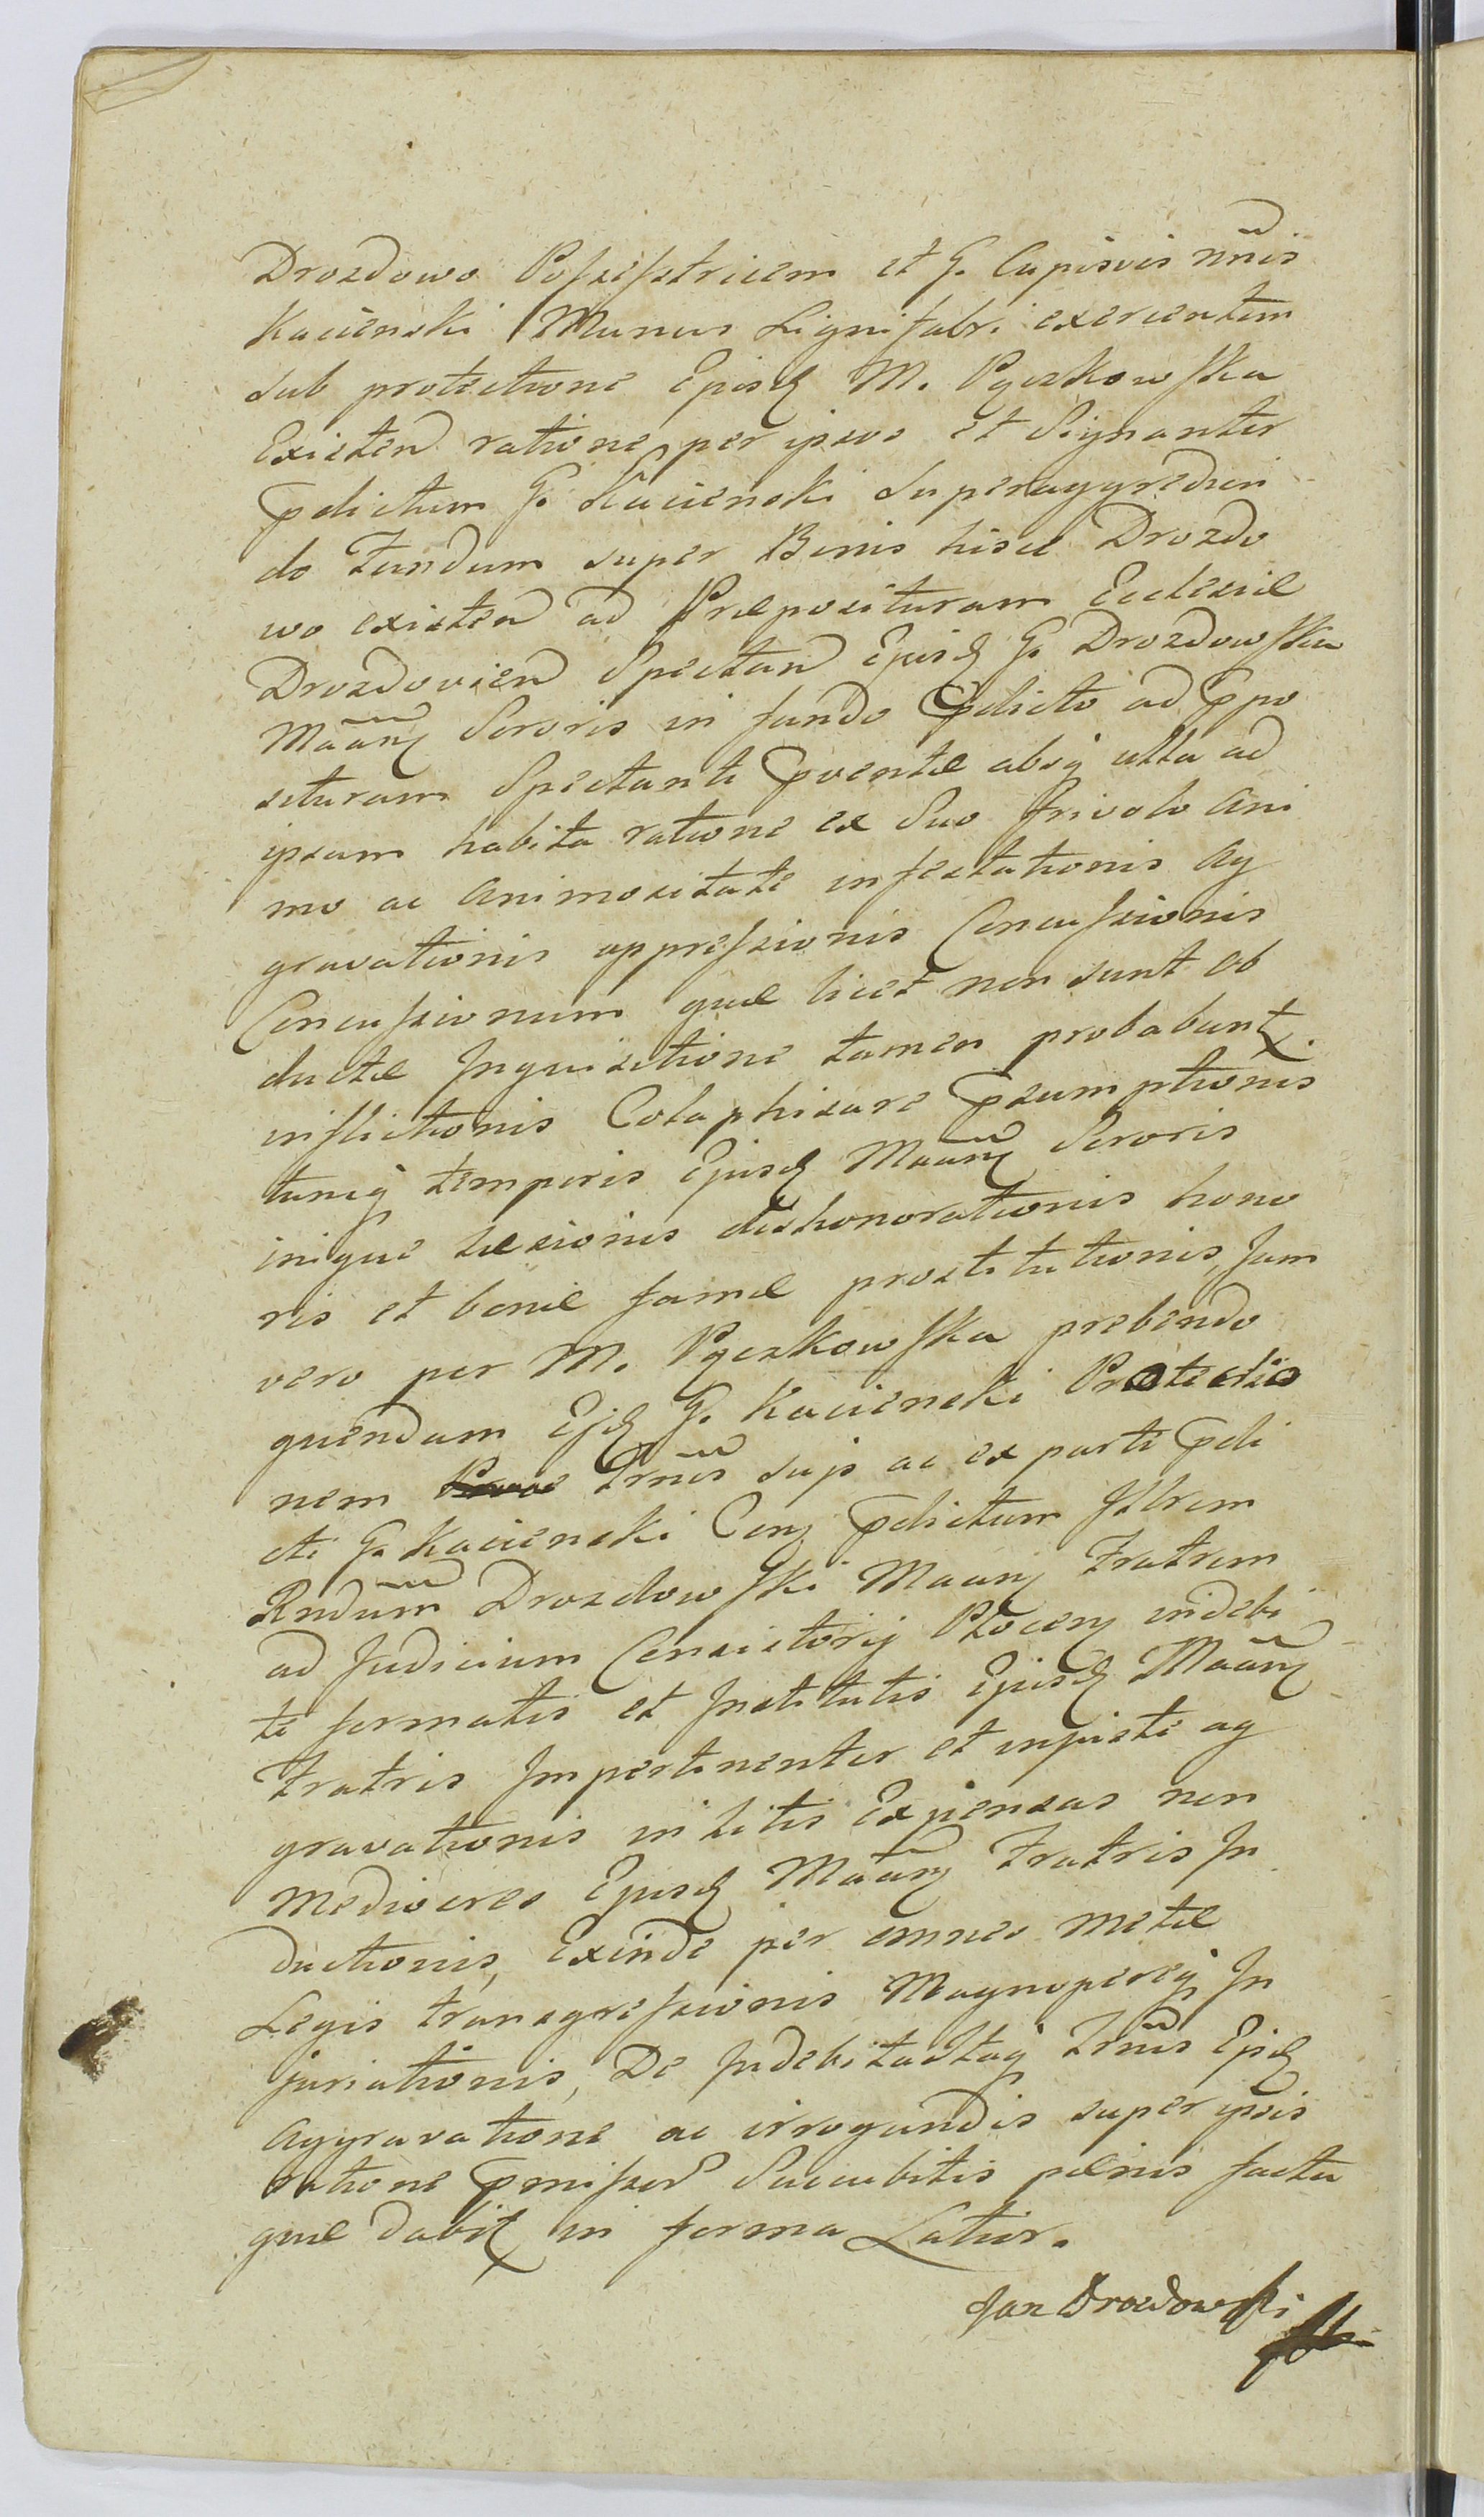 Drozdowo Possesstricem et G. Cupisvis nñis
Kacienski Munus Lignifabri exercentem
sub protectione Ejusd M. Pęczkowska
Existen ratione per ipsos et Signanter
pdictum G. Kacienski Superaggredien
do Fundum super Bonis hisce Drozdo
wo existen ad Præposituram Ecclesiæ
Drozdovien Spectan Ejusd G. Drozdowska
Mãanj Sororis in fundo pdicto ad ppo
situram Spectanti pventæ absq ulla ad
ipsam habita ratione ex Suo frivolo Ani
mo ac Animositate infestationis Ag
gravationis oppressionis Concussionis
Concussionum quæ licet non sunt ob
ductæ Inquisitione tamen probabunt.
inflictionis Colaphisare psumptionis
tuncq temporis Ejusd Mãanj Sororis
inique Læsionis dishonorationis hono
ris et bonæ famæ prostitutionis, Jam
vero per M. Pęczkowska prebendo
quendam Ejd G. Kacienski Protectio
nem Trniis sujs ac ex parte pdi
cti G. Kacienski Conj pdictum Illrem
Rndum Drozdowski Maanj Fratrem
ad Judicium Consistorij Płocenj indebi
te formatis et Institutis Ejusd Mãanj
Fratris Impertinenter et injuste ag
gravationis in Litis Expensas non
Mediocres Ejusd Mãanj Fratris In
ductionis, Exinde per omnes Metæ
Legis transgressionis Magnopereq In
juriationis, De Indebitaq Trniis Ejd
Aggravatione ac irrogandis super ipsis
ratione pmissor Succubitis pænis facta
quæ dabit in forma Latior.
Jan Drozdowski